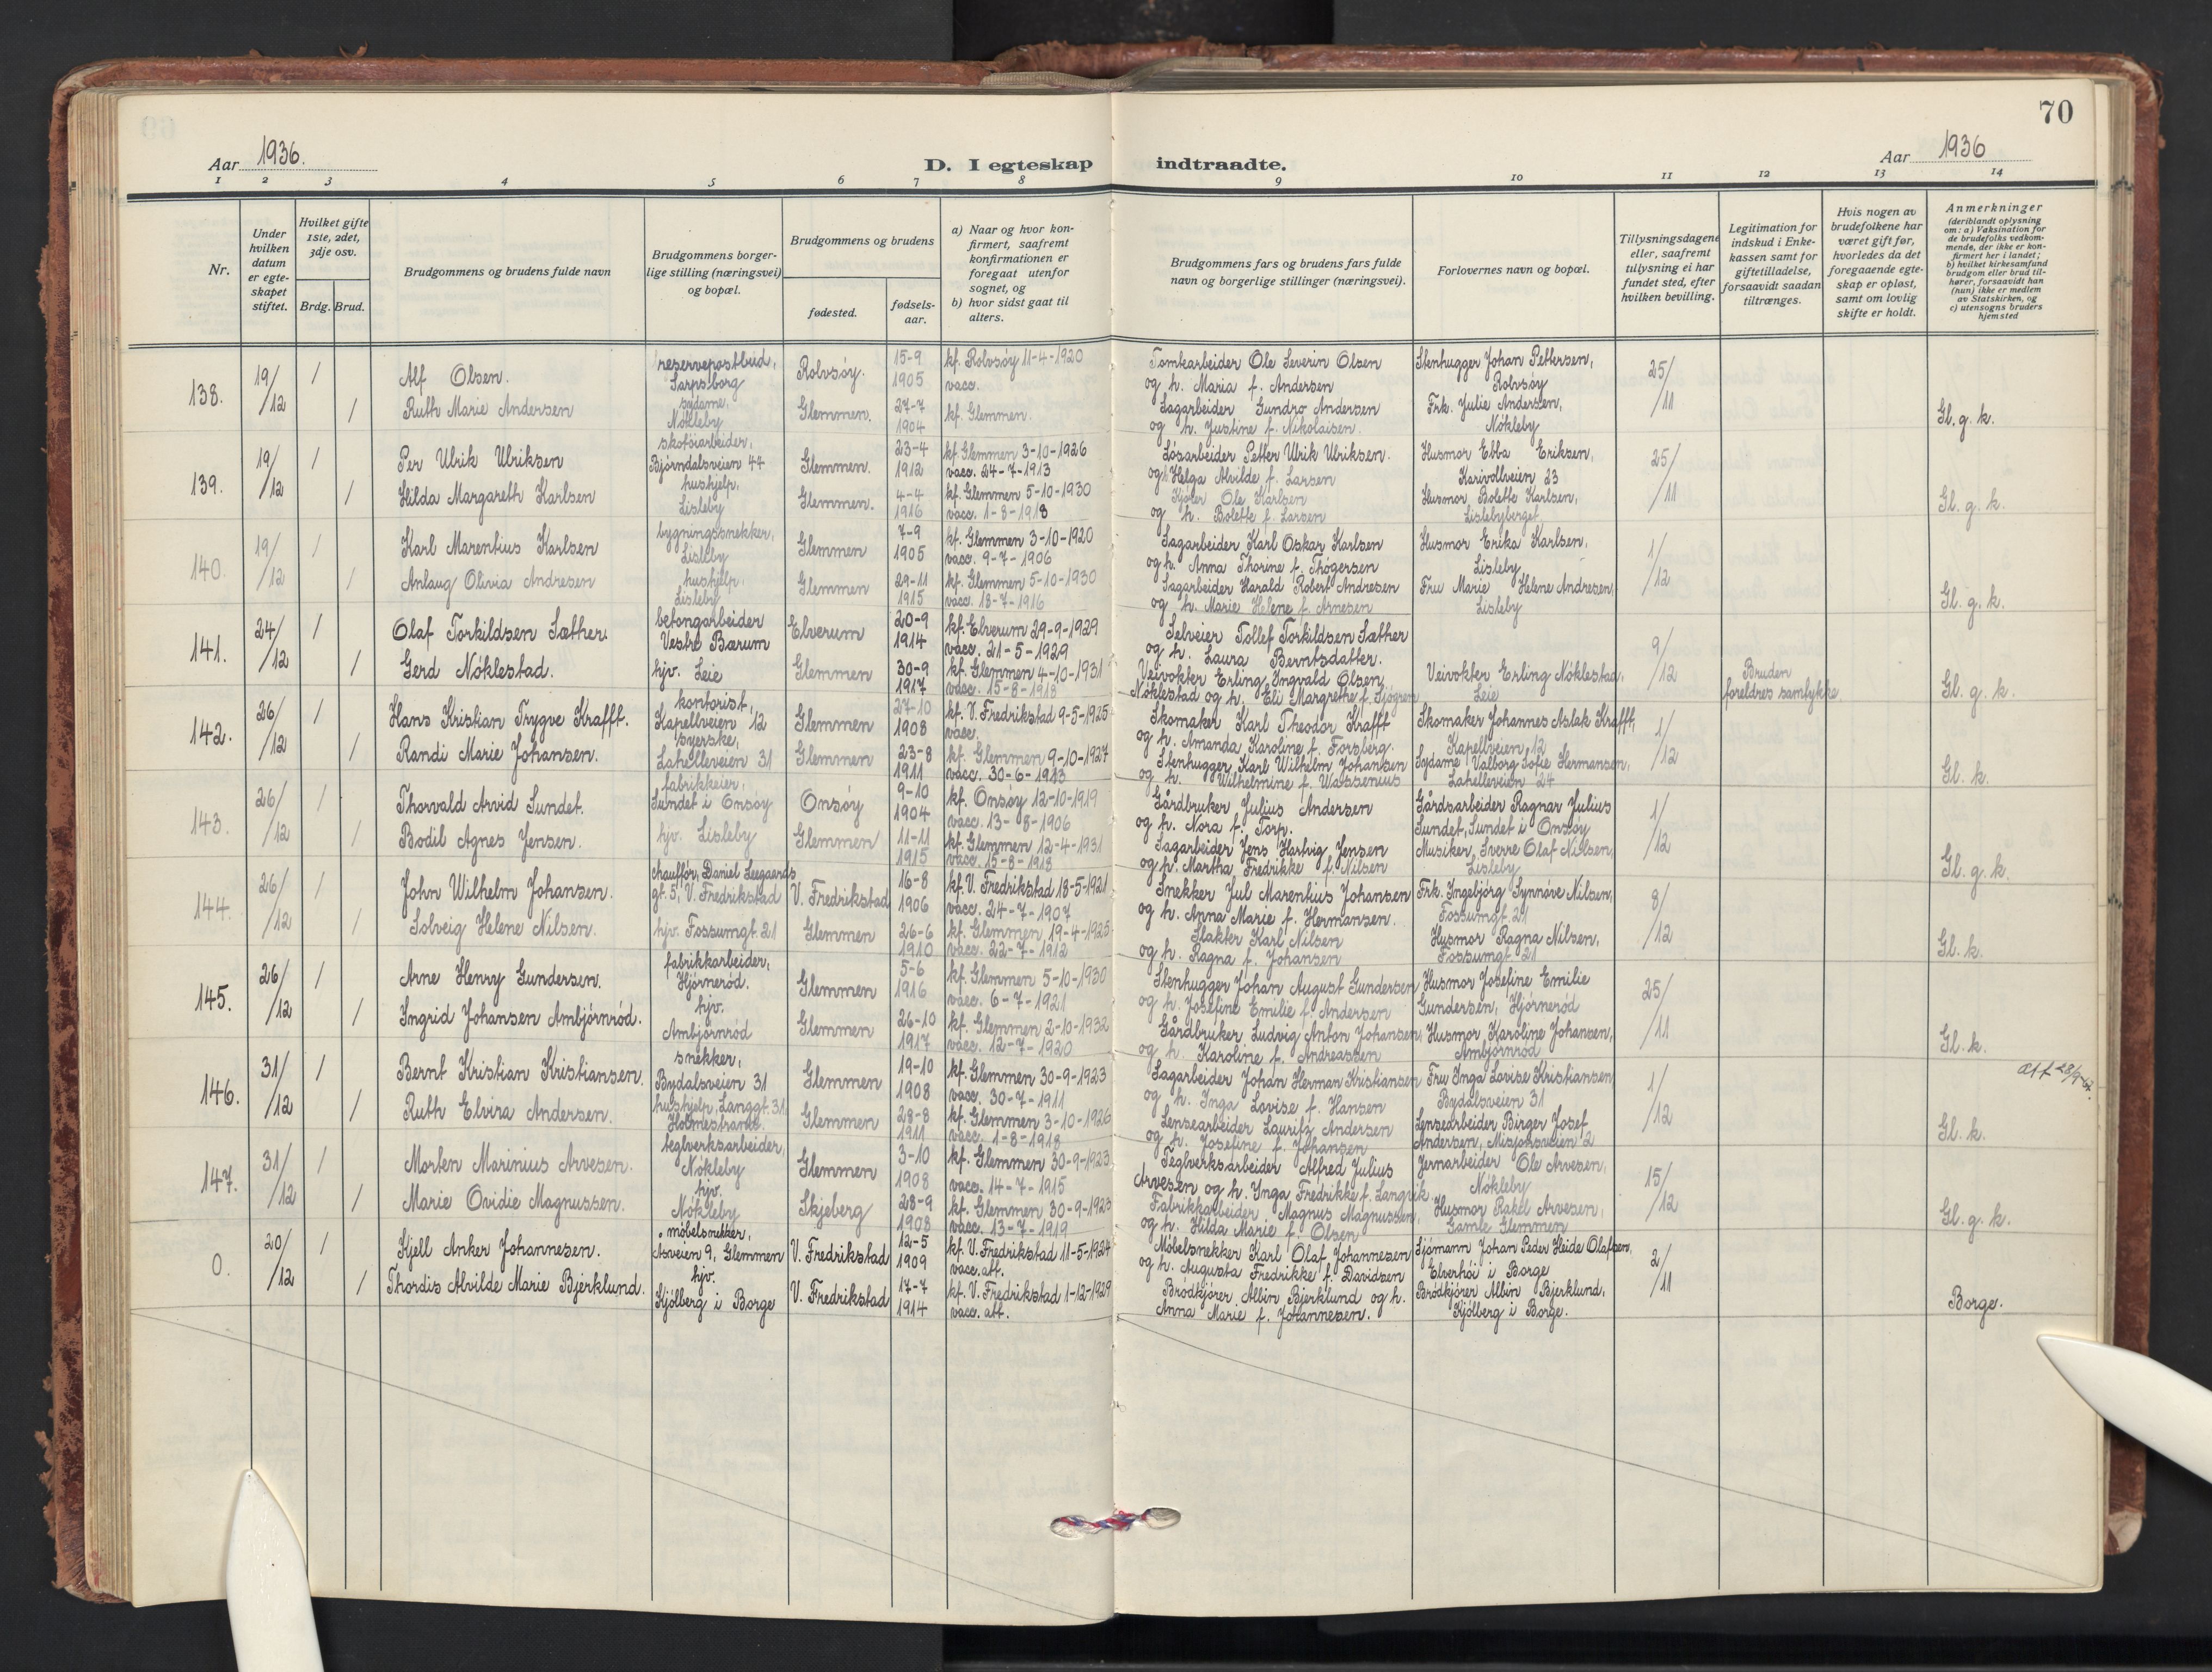 70
Aar 1936.
D. I egteskap indtraadte.
Aar 1936
1 2 3 4 5 6 7 8 9 10 11 12 13 14
Nr.
Under hvilken datum er egteskapet stiftet.
Hvilket gifte 1ste, 2det, 3dje osv.
Brdg. Brud.
Brudgommens og brudens fulde navn
Brudgommens borgerlige stilling (næringsvei) og bopæl.
Brudgommens og brudens
fødested.
fødselsaar.
a) Naar og hvor konfirmert, saafremt konfirmationen er foregaat utenfor sognet, og
b) hvor sidst gaat til alters.
Brudgommens fars og brudens fars fulde navn og borgerlige stillinger (næringsvei).
Forlovernes navn og bopæl.
Tillysningsdagene eller, saafremt tillysning ei har fundet sted, efter hvilken bevilling.
Legitimation for indskud i Enkekassen samt for giftetilladelse, forsaavidt saadan tiltrænges.
Hvis nogen av brudefolkene har været gift før, hvorledes da det foregaaende egteskap er opløst, samt om lovlig skifte er holdt.
Anmerkninger
(deriblandt oplysning om: a) Vaksination for de brudefolks vedkommende, der ikke er konfirmert her i landet;
b) hvilket kirkesamfund brudgom eller brud tilhører, forsaavidt han (hun) ikke er medlem av Statskirken, og
c) utensogns bruders hjemsted
138. 19/12 1 Alf Olsen. reservepostbud, Sarpsborg Rolvsøy. 15-9 1905 kf. Rolvsøy 11-4-1920 vacc. Tomtarbeider Ole Severin Olsen og h. Maria f. Andersen Stenhugger Johan Pettersen, Rolvsøy 25/11
1 Ruth Marie Andersen sydame, Nøkleby Glemmen. 27-7 1904 kf. Glemmen. Sagarbeider Gundro Andersen og h. Justine f. Nikolaisen. Frk. Julie Andersen, Nøkleby Gl. g. k.
139. 19/12 1 Per Ulrik Ulriksen skotøiarbeider, Bjørndalsveien 44 Glemmen. 23-4 1912 kf. Glemmen 3-10-1926 vacc. 24-7-1913 Løsarbeider Petter Ulrik Ulriksen. og h. Helga Alvilde f. Larsen Husmor Ebba Eriksen, Karivollveien 23 25/11
1 Hilda Margareth Karlsen hushjelp, Lisleby Glemmen. 4-4 1916 kf. Glemmen 5-10-1930 vacc. 1-8-1918 Kjører Ole Karlsen og h. Bolette f. Larsen Husmor Bolette Karlsen, Lislebyberget Gl. g. k.
140. 19/12 1 Karl Marentius Karlsen bygningssnekker, Lisleby Glemmen 7-9 1905 kf. Glemmen 3-10-1920 vacc. 9-7-1906 Sagarbeider Karl Oskar Karlsen og h. Anna Thorine f. Thøgersen Husmor Erika Karlsen, Lisleby 1/12
1 Anlaug Olivia Andresen hushjelp, Lisleby Glemmen 29-11 1915 kf. Glemmen 5-10-1930 vacc. 18-7-1916 Sagarbeider Harald Robert Andresen og h. Marie Helene f. Arnesen Fru Marie Helene Andresen, Lisleby Gl. g. k.
141. 24/12 1 Olaf Torkildsen Sæther. betongarbeider Vestre Bærum Elverum 20-9 1914 kf. Elverum 29-9-1929 vacc. 21-5-1929 Selveier Tollef Torkildsen Sæther og h. Laura Berntsdatter. 9/12
1 Gerd Nøklestad. hjv. Leie Glemmen 30-9 1917 kf. Glemmen 4-10-1931 vacc. 15-8-1918 Veivokter Erling Ingvald Olsen Nøklestad og h. Eli Margrethe f. Sjøgren Veivokter Erling Nøklestad, Leie Bruden foreldres samtykke Gl. g. k.
142. 26/12 1 Hans Kristian Trygve Krafft. kontorist, Kapellveien 12 Glemmen 27-10 1908 kf. V. Fredrikstad 9-5-1925 vacc. Skomaker Karl Theodor Krafft og h. Amanda Karoline f. Forsberg. Skomaker Johannes Aslak Krafft, Kapellveien 12 1/12
1 Randi Marie Johansen. syerske, Lahelleveien 31 Glemmen 23-8 1911 kf. Glemmen 9-10-1927 vacc. 30-6-1913 Stenhugger Karl Wilhelm Johansen og h. Wilhelmine f. Wassenius Sydame Valborg Sofie Hermansen, Lahelleveien 24 Gl. k.
143. 26/12 1 Thorvald Arvid Sundet. fabrikkeier, Sundet i Onsøy Onsøy 9-10 1904 kf. Onsøy 12-10-1919 vacc. 13-8-1906 Gårdbruker Julius Andersen og h. Nora f. Torp. Gårdsarbeider Ragnar Julius Sundet, Sundet i Onsøy 1/12
1 Bodil Agnes Jensen. hjv. Lisleby Glemmen 11-11 1915 kf. Glemmen 12-4-1931 vacc. 15-8-1918 Sagarbeider Jens Hartvig Jensen og h. Martha Fredrikke f. Nilsen Musiker Sverre Olaf Nielsen, Lisleby Gl. g. k.
144. 26/12 1 John Wilhelm Johansen. chauffør, Daniel Leegaards gt. 5, V. Fredrikstad V. Fredrikstad 16-8 1906 kf. V. Fredrikstad 18-5-1921 vacc. 24-7-1907 Snekker Jul Marentius Johansen og h. Anna Marie f. Hermansen. Frk. Ingebjørg Synnøve Nilsen, Fossumgt. 21 8/12
1 Solveig Helene Nilsen. hjv. Fossumgt. 21 Glemmen 26-6 1910 kf. Glemmen 19-4-1925 vacc. 22-7-1912 Slakter Karl Nilsen og h. Ragna f. Johansen Husmor Ragna Nilsen, Fossumgt. 21 Gl. k.
145. 26/12 1 Arne Henry Gundersen. fabrikkarbeider, Hjørnerød. Glemmen 5-6 1916 kf. Glemmen 5-10-1930 vacc. 6-7-1921 Stenhugger Johan August Gundersen og h. Josefine Emilie f. Andersen Husmor Josefine Emilie Gundersen, Hjørnerød 25/11
1 Ingrid Johansen Ambjørnrød. hjv. Ambjørnrød Glemmen 26-10 1917 kf. Glemmen 2-10-1932 vacc. 12-7-1920 Gårdbruker Ludvig Anton Johansen, og h. Karoline f. Andreassen Husmor Karoline Johansen, Ambjørnrød Gl. k.
146. 31/12 1 Bernt Kristian Kristiansen. snekker, Bydalsveien 31 Glemmen 19-10 1908 kf. Glemmen 30-9-1923 vacc. 30-7-1911 Sagarbeider Johan Herman Kristiansen og h. Inga Lovise f. Hansen Fru Inga Lovise Kristiansen Bydalsveien 31 1/12 att
1 Ruth Elvira Andersen. hushjelp, Langgt. 31, Holmestrand. Glemmen 28-8 1911 kf. Glemmen 3-10-1926 vacc. 1-8-1918 Lensearbeider Lauritz Andersen og h. Josefine f. Johansen Lensearbeider Birger Josef Andersen, Misjonsveien 2 Gl. k.
147. 31/12 1 Morten Marinius Arvesen. teglverksarbeider, Nøkleby Glemmen 3-10 1908 kf. Glemmen 30-9-1923 vacc. 14-7-1915 Teglverksarbeider Alfred Julius Arvesen og h. Inga Fredrikke f. Langvik. Jernarbeider Ole Arvesen, Nøkleby 15/12
1 Marie Ovidie Magnussen. hjv. Nøkleby Skjeberg 28-9 1908 kf. Glemmen 30-9-1923 vacc. 13-7-1919 Fabrikkarbeider Magnus Magnussen, og h. Hilda Marie f. Olsen Husmor Rakel Arvesen, Gamle Glemmen Gl. g. k.
0. 20/12 1 Kjell Anker Johannesen. møbelsnekker, Åsveien 9, Glemmen V. Fredrikstad 12-5 1909 kf. V. Fredrikstad 11-5-1924 vacc. att. Møbelsnekker Karl Olaf Johannesen og h. Augusta Fredrikke f. Davidsen Sjømann Johan Peder Heide Olafsen, Elverhøi i Borge 2/11
1 Thordis Alvilde Marie Bjerklund. hjv. Kjølberg i Borge V. Fredrikstad 17-7 1914 kf. V. Fredrikstad 1-12-1929 vacc. att. Brødkjører Albin Bjerklund og h. Anna Marie f. Johannesen. Brødkjører Albin Bjerklund, Kjølberg i Borge. Borge.